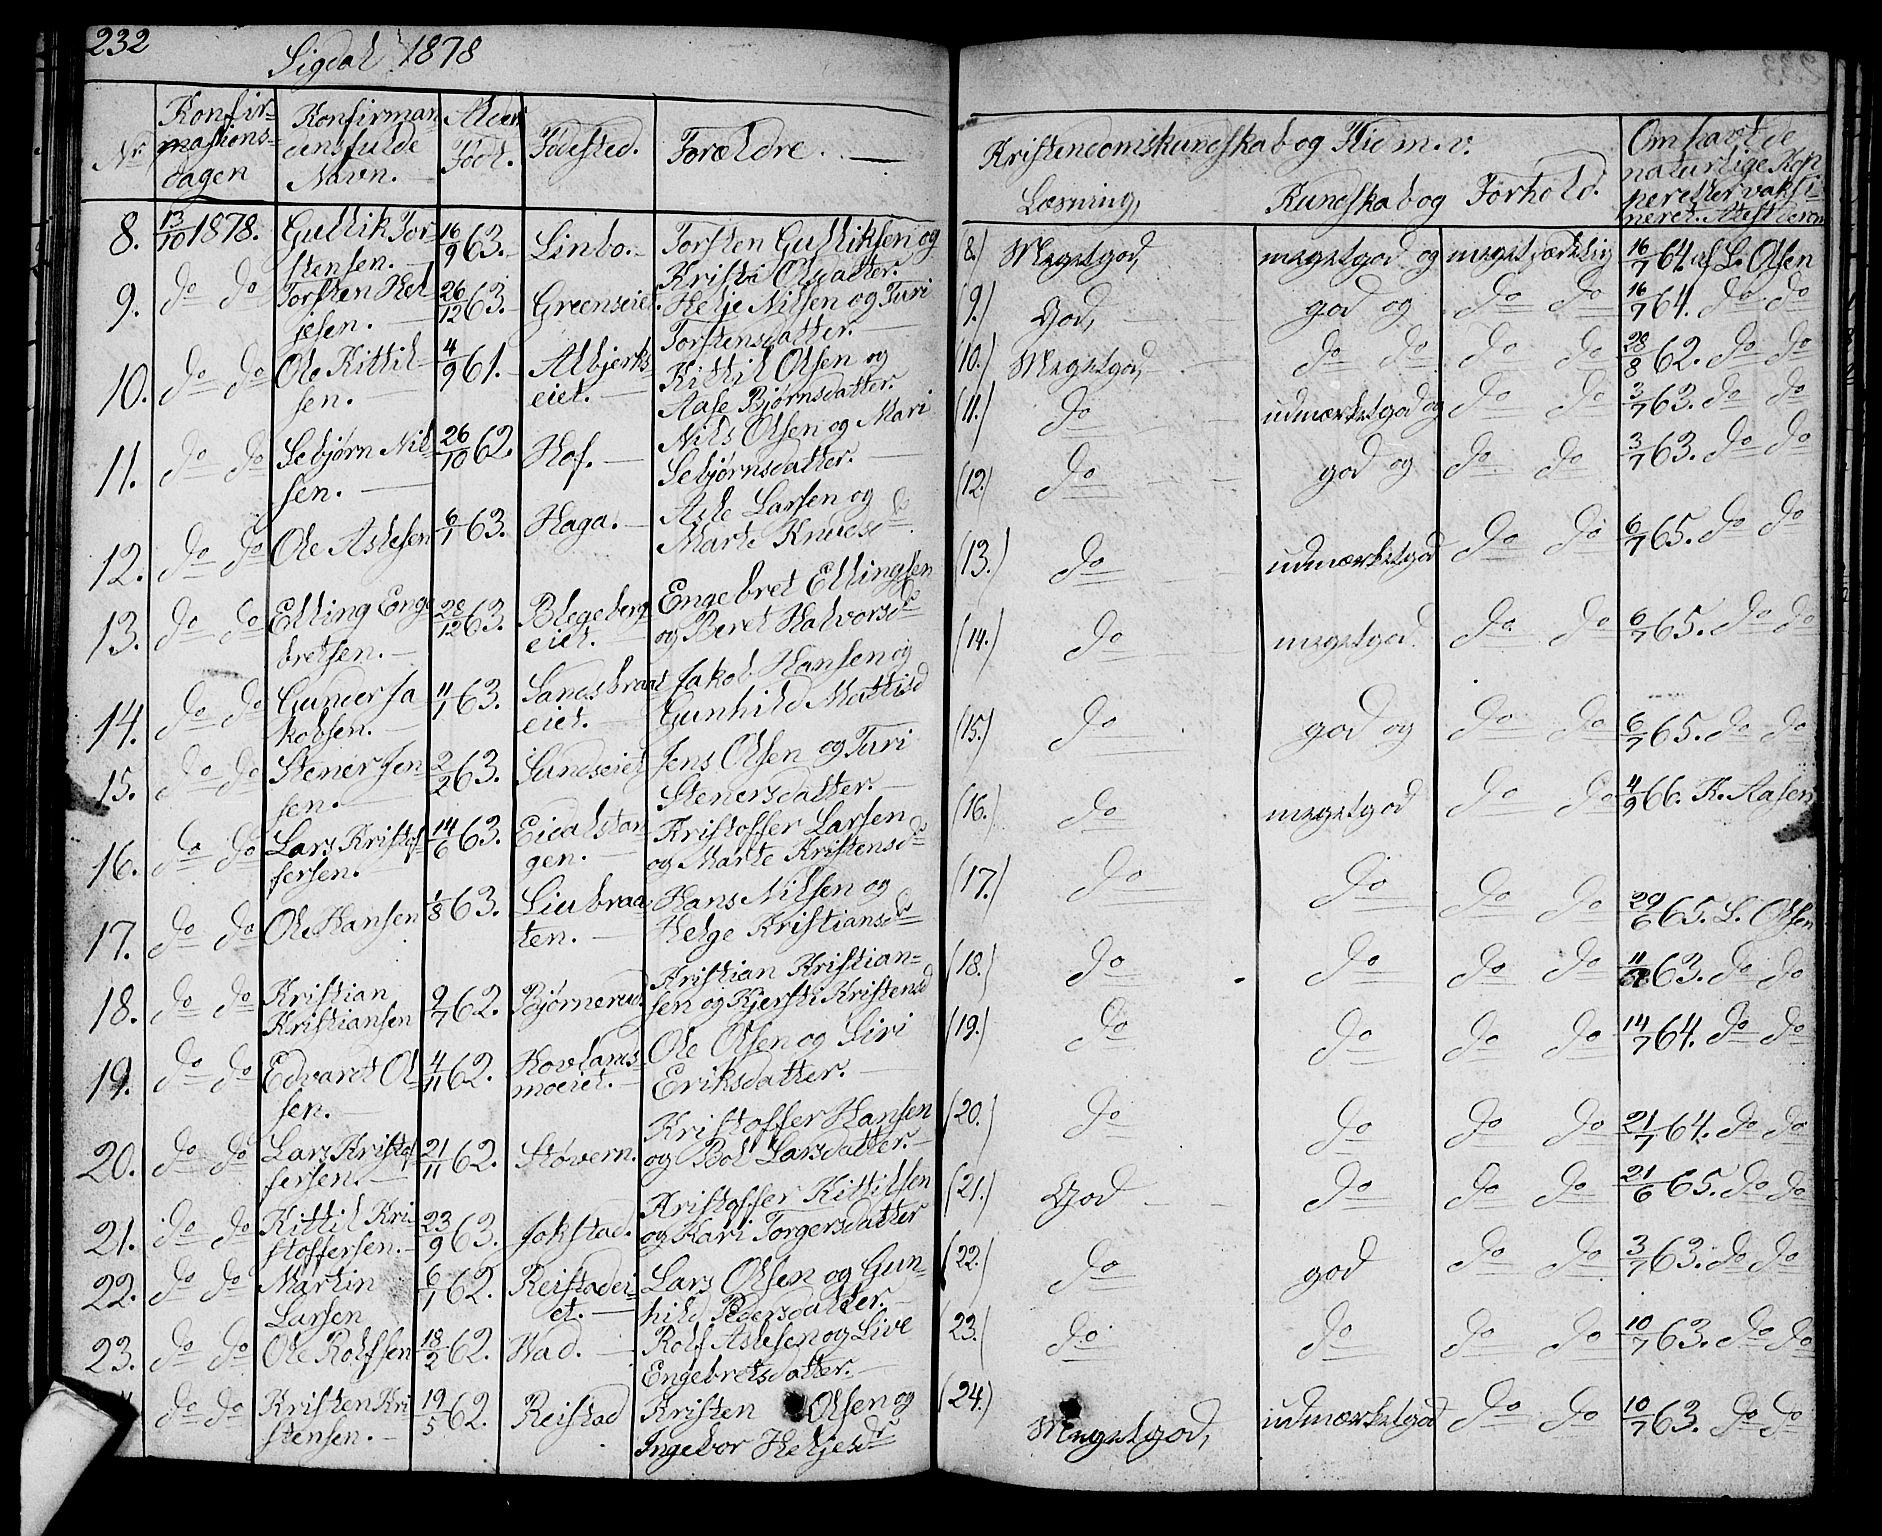 232
Sigdal 1878
Nr. Konfirmasions-dagen Konfirmandens fulde Navn. Alder Född. Födested. Forældre.
8. 13/10 1878. Gullik Torstensen. 16/9 63. Linbo. Torsten Gulliksen og Kristi Olsdatter.
9. do do Torsten Heljesen. 26/12 63. Greenseiet. Helje Nilsen og Turi Torstensdatter.
10. do do Ole Kittilsen. 4/9 61. Albjerkseiet. Kittil Olsen og Aase Bjørnsdatter.
11. do do Sebjørn Nilsen. 26/10 62. Hof. Nils Olsen og Mari Sebjørnsdatter.
12. do do Ole Aslesen 6/1 63. Haga. Asle Larsen og Marte Knudsd
13. do do Elling Engebretsen. 28/12 63. Blegebergeiet. Engebret Ellingsen og Beret Halvorsdr
14. do do Gunder Jakobsen. 11/1 63. Sandsbraateiet. Jakob Hansen og Gunhild Mattisd
15. do do Stener Jensen. 2/2 63. Sundseiet Jens Olsen og Turi Stenersdatter.
16. do do Lars Kristoffersen. 14/6 63. Eidalstangen. Kristoffer Larsen og Marte Kristensdr
17. do do Ole Hansen 1/8 63. Liubraaten. Hans Nilsen og Helge Kristiansdr
18. do do Kristian Kristiansen 9/7 62. Bjørnerud. Kristian Kristiansen og Kjersti Kristensd
19. do do Edvardt Olsen. 4/11 62. Hovlandsmoeiet. Ole Olsen og Siri Eriksdatter.
20. do do Lars Kristoffersen. 21/11 62. Støvern. Kristoffer Hansen og Bol Larsdatter.
21. do do Kittil Kristoffersen. 23/9 63. Jokstad. Kristoffer Kittilsen og Kari Torgersdatter
22. do do Martin Larsen 6/1 62. Reistadeiet. Lars Olsen og Gunhild Pedersdatter.
23. do do Ole Rolfsen 18/2 62. Wad. Rolf Aslesen og Live Engebretsdatter.
do do Kristen Kristensen. 19/5 62. Reistad Kristen Olsen og Ingebor Heljesdr
Kristendomskundskab og Flid m.v.
Læsning, Kundskab og Forhold.
(8.) Megetgod, megetgod og megetsædelig 16/7 64 af L. Olsen
(9.) God, god og do do 16/7 64. do do
(10.) Megetgod, do do do do 28/8 62. do do
(11.) do udmærketgod og do do 3/7 63. do do
(12.) do god og do do 3/7 63. do do
(13.) do udmærketgod do do 6/7 65. do do
(14.) do megetgod do do 6/7 65. do do
(15.) do god og do do 6/7 65. do do
(16.) do megetgod do do 4/9 66. K. Aasen
(17.) do do do do 29/6 65. L. Olsen
(18.) do do do do 63. do do
(19.) do do do do 14/7 64. do do
(20.) do do do do 21/7 64. do do
(21.) God do do do 21/6 65. do do
(22.) do god do do 3/7 63. do do
23. do do do do 10/7 63. do do
(24.) Megetgod, udmærketgod do do 10/7 63. do do